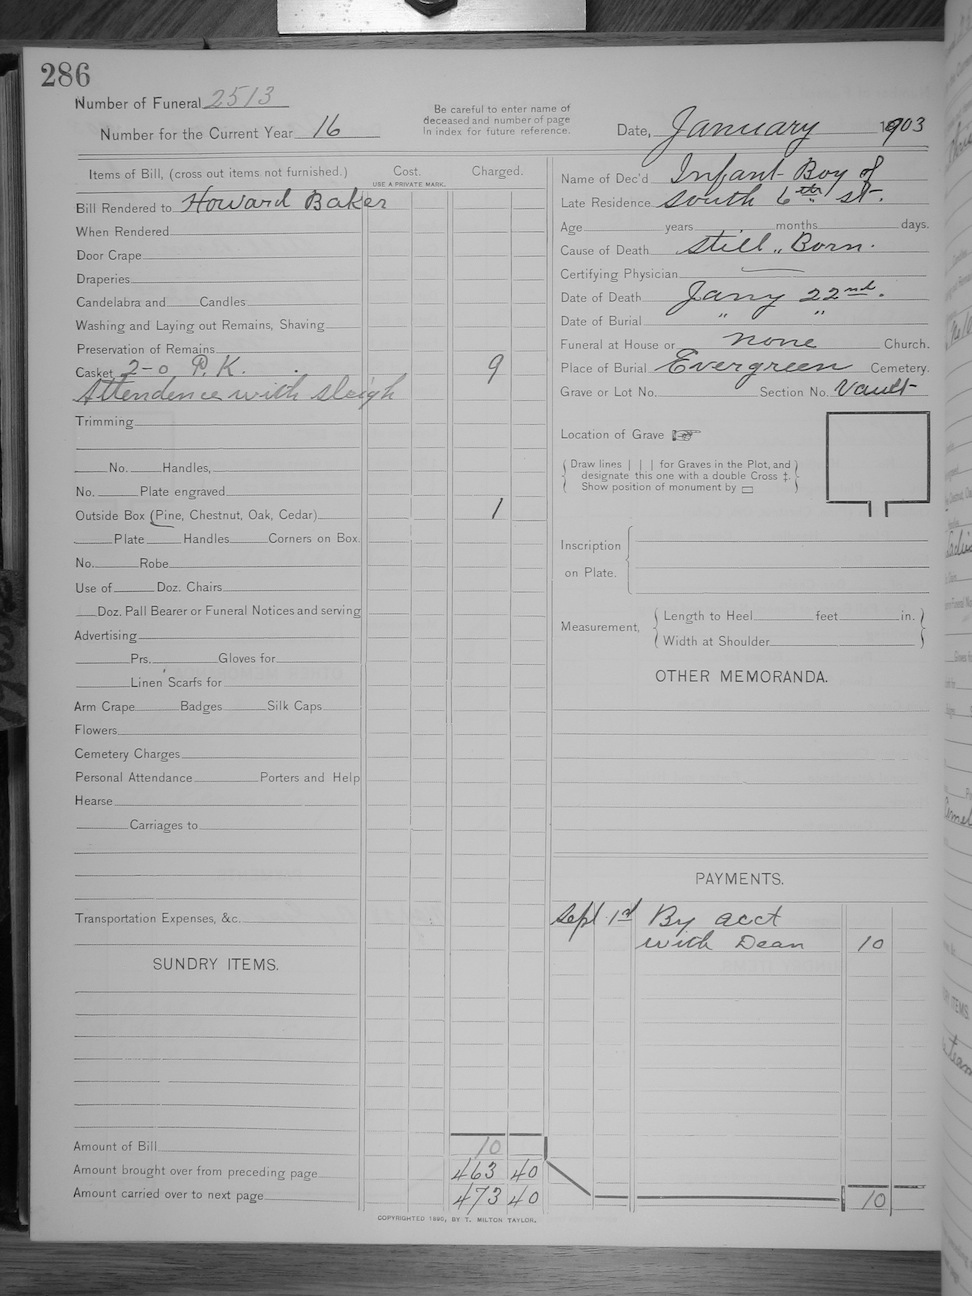 286
Number of Funeral 2513
Number for the Current Year 16
Be careful to enter name of
deceased and number of page
in index for future reference.
Date, January 1903
Items of Bill, (cross out items not furnished.)
Cost.
USE A PRIVATE MARK.
Charged.
Bill Rendered to Howard Baker
When Rendered
Door Crape
Draperies
Candelabra and Candles
Washing and Laying out Remains, Shaving
Preservation of Remains
Casket 2-0 P.K. 9
Attendence with sleigh
Trimming
No. Handles,
No. Plate engraved
Outside Box (Pine, Chestnut, Oak, Cedar) 1
Plate Handles Corners on Box.
No. Robe
Use of Doz. Chairs
Doz. Pall Bearer or Funeral Notices and serving
Advertising
Prs. Gloves for
Linen Scarfs for
Arm Crape Badges Silk Caps
Flowers
Cemetery Charges
Personal Attendance Porters and Help
Hearse
Carriages to
Transportation Expenses, &c.
SUNDRY ITEMS.
Amount of Bill 10
Amount brought over from preceding page 463 40
Amount carried over to next page 473 40
Name of Dec'd Infant Boy of
Late Residence South 6th st.
Age years months days.
Cause of Death Still Born.
Certifying Physician
Date of Death Jany 22nd.
Date of Burial " "
Funeral at House or none Church.
Place of Burial Evergreen Cemetery.
Grave or Lot No. Section No. Vault
Location of Grave
Draw lines | | | for Graves in the Plot, and
designate this one with a double Cross ‡.
Show position of monument by ▭
Inscription
on Plate.
Measurement,
Length to Heel feet in.
Width at Shoulder
OTHER MEMORANDA.
PAYMENTS.
Sept 1st By acct
with Dean 10
10
COPYRIGHTED 1890, BY T. MILTON TAYLOR.